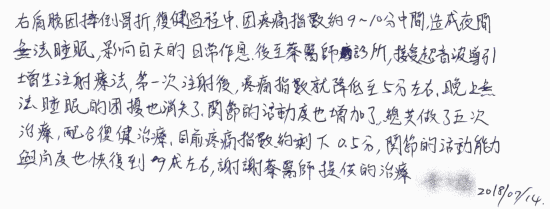 右肩膀因摔倒骨折，復健過程中，因疼痛指數約9~10分中間，造成夜間
無法睡眠，影响白天的日常作息，後至蔡醫師診所，接受超音波導引
增生注射療法，第一次注射後，疼痛指數就降低至5分左右，晚上無
法睡眠的困擾也消失了，関節的活動度也增加了，總共做了五次
治療，配合復健治療，目前疼痛指數約剩下0.5分，関節的活動能力
與角度也恢復到9成左右，謝謝蔡醫師提供的治療
2018/07/14.